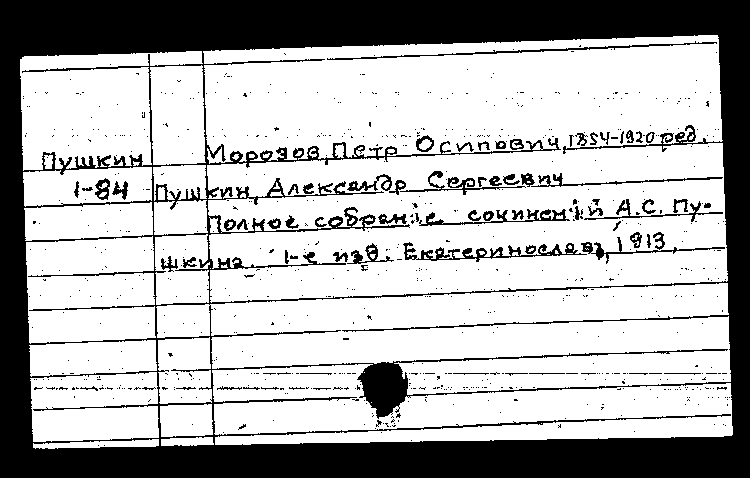 Морозов, Петр Осипович, 1854-1920 ред.
Пушкин
1-84
Пушкин, Александр Сергеевич
Полное собрание сочиненiй А.С. Пу-
шкина. 1-е изд. Екатеринославъ, 1913.